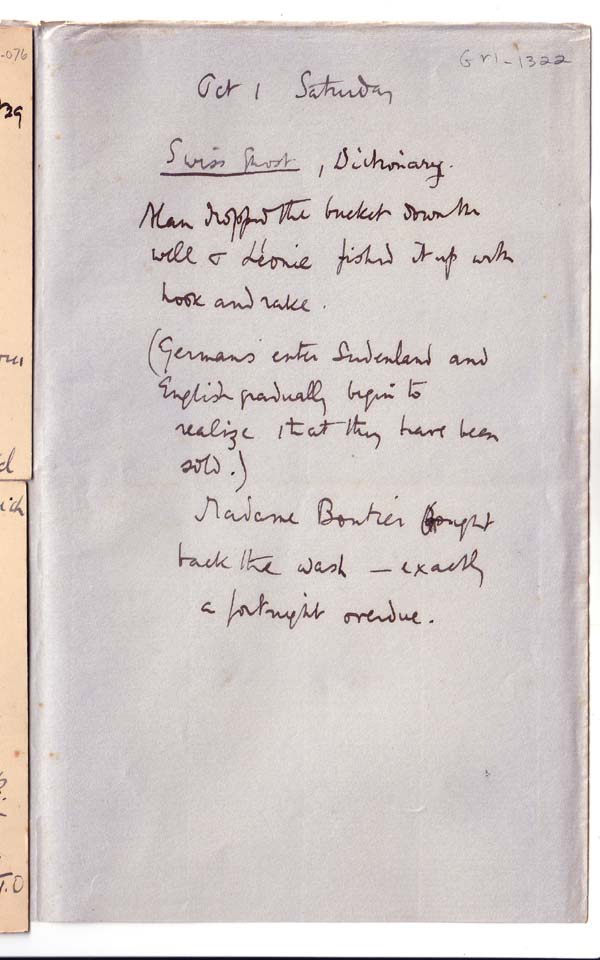 -076
GV1-1322
Oct 1 Saturday
Swiss Ghost, Dictionary.
Alan dropped the bucket down the
well & Léonie fished it up with
hook and rake.
(Germans enter Sudenland and
English gradually begin to
realize that they have been
sold.)
Madame Bontier
back the wash – exactly
a fortnight overdue.
T.O